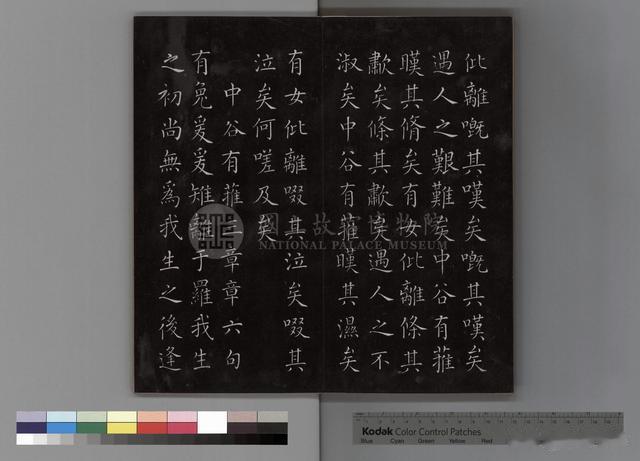 仳離嘅其嘆矣嘅其嘆矣
遇人之艱難矣中谷有蓷
暵其脩矣有女仳離條其
歗矣條其歗矣遇人之不
淑矣中谷有蓷暵其濕矣
有女仳離啜其泣矣啜其
泣矣何嗟及矣
中谷有蓷三章章六句
有兔爰爰雉離于羅我生
之初尚無爲我生之後逢
國立故宮博物院
NATIONAL PALACE MUSEUM
Kodak Color Control Patches
Blue Cyan Green Yellow Red